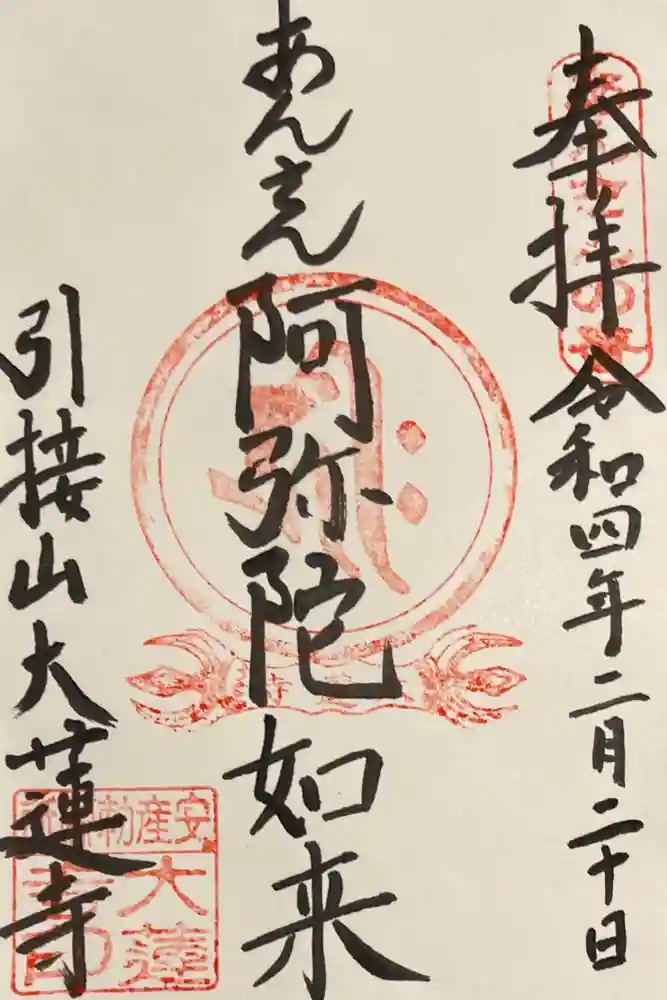 奉拝 令和四年二月二十日
あんさん 阿弥陀如来
引接山大蓮寺
安産勅願所
大蓮寺印